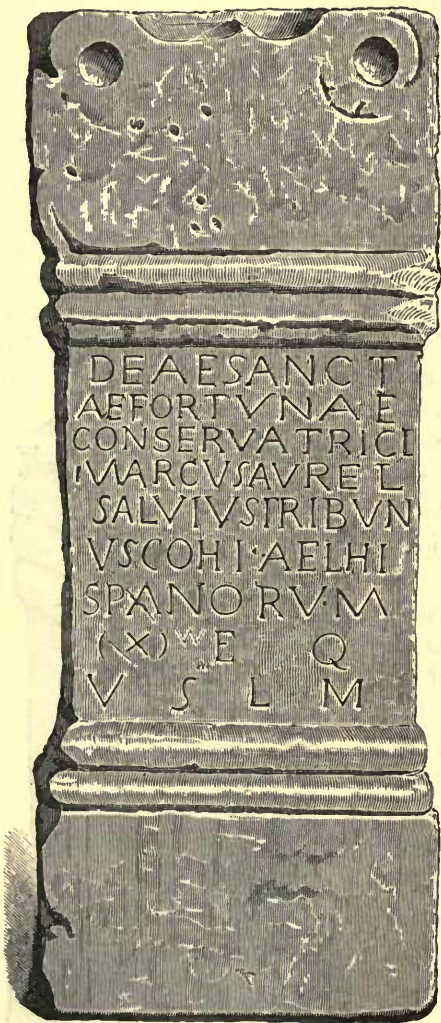 DEAESANCT
AEFORTVNAE
CONSERVATRICI
MARCVSAVREL
SALVIVSTRIBVN
VSCOHI·AELHI
SPANORV·M
(X) E Q
V S L M